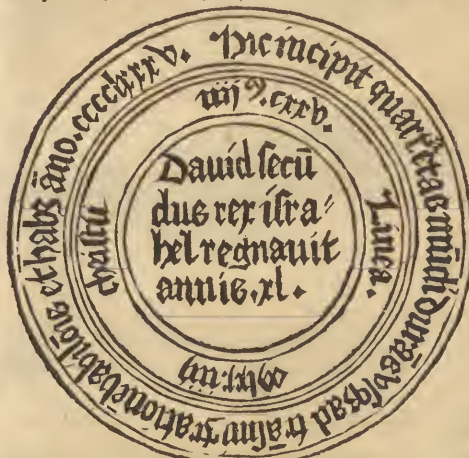 Hic incipit quarta etas mūdi durās vsqꝫ ad trāsmigrationē babilōis et habꝫ āno. cccclxxxv.
iiijꝰ. cxxv.
Linea.
christi
Dauid secū
dus rex isra⸗
hel regnauit
annis .xl.